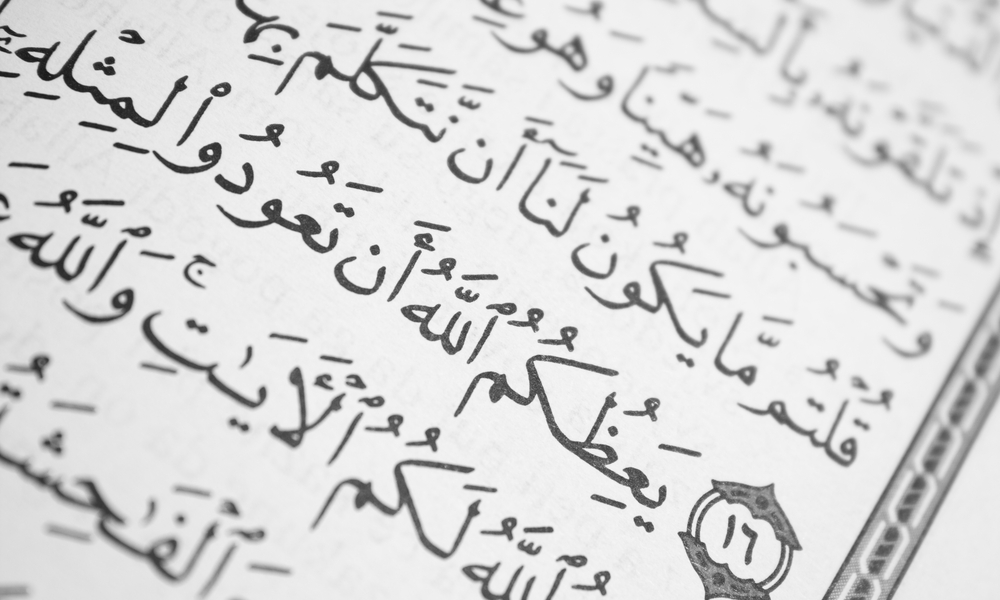 إِذْ تَلَقَّوْنَهُۥ بِأَلْسِ
وَتَحْسَبُونَهُۥ هَيِّنًا وَهُوَ
قُلْتُم مَّا يَكُونُ لَنَآ أَن نَّتَكَلَّمَ بِهَ
١٦ يَعِظُكُمُ ٱللَّهُ أَن تَعُودُوا۟ لِمِثْلِهِۦٓ
ٱللَّهُ لَكُمُ ٱلْءَايَٰتِ ۚ وَٱللَّهُ
ٱلْفَٰحِشَةُ